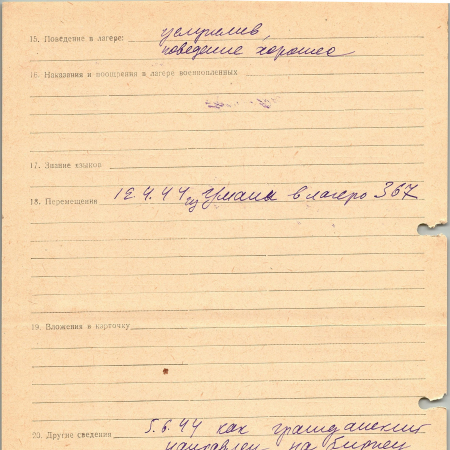 15. Поведение в лагере: услужлив,
поведение хорошее
16. Наказания и поощрения в лагере военнопленных
17. Знание языков
18. Перемещения 12.4.44 из Умани в лагерь 367
19. Вложения в карточку
20. Другие сведения 5.6.44 как гражданский
направлен на